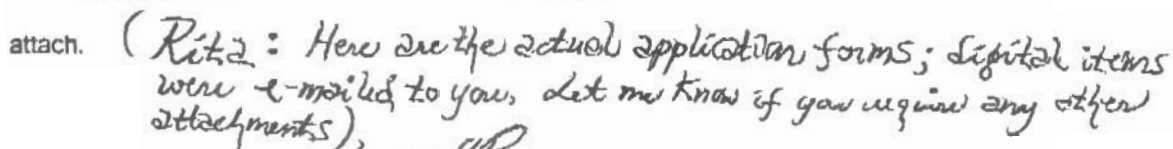 attach. (Rita: Here are the actual application forms; digital items
were e-mailed to you. Let me know if you require any other
attachments).